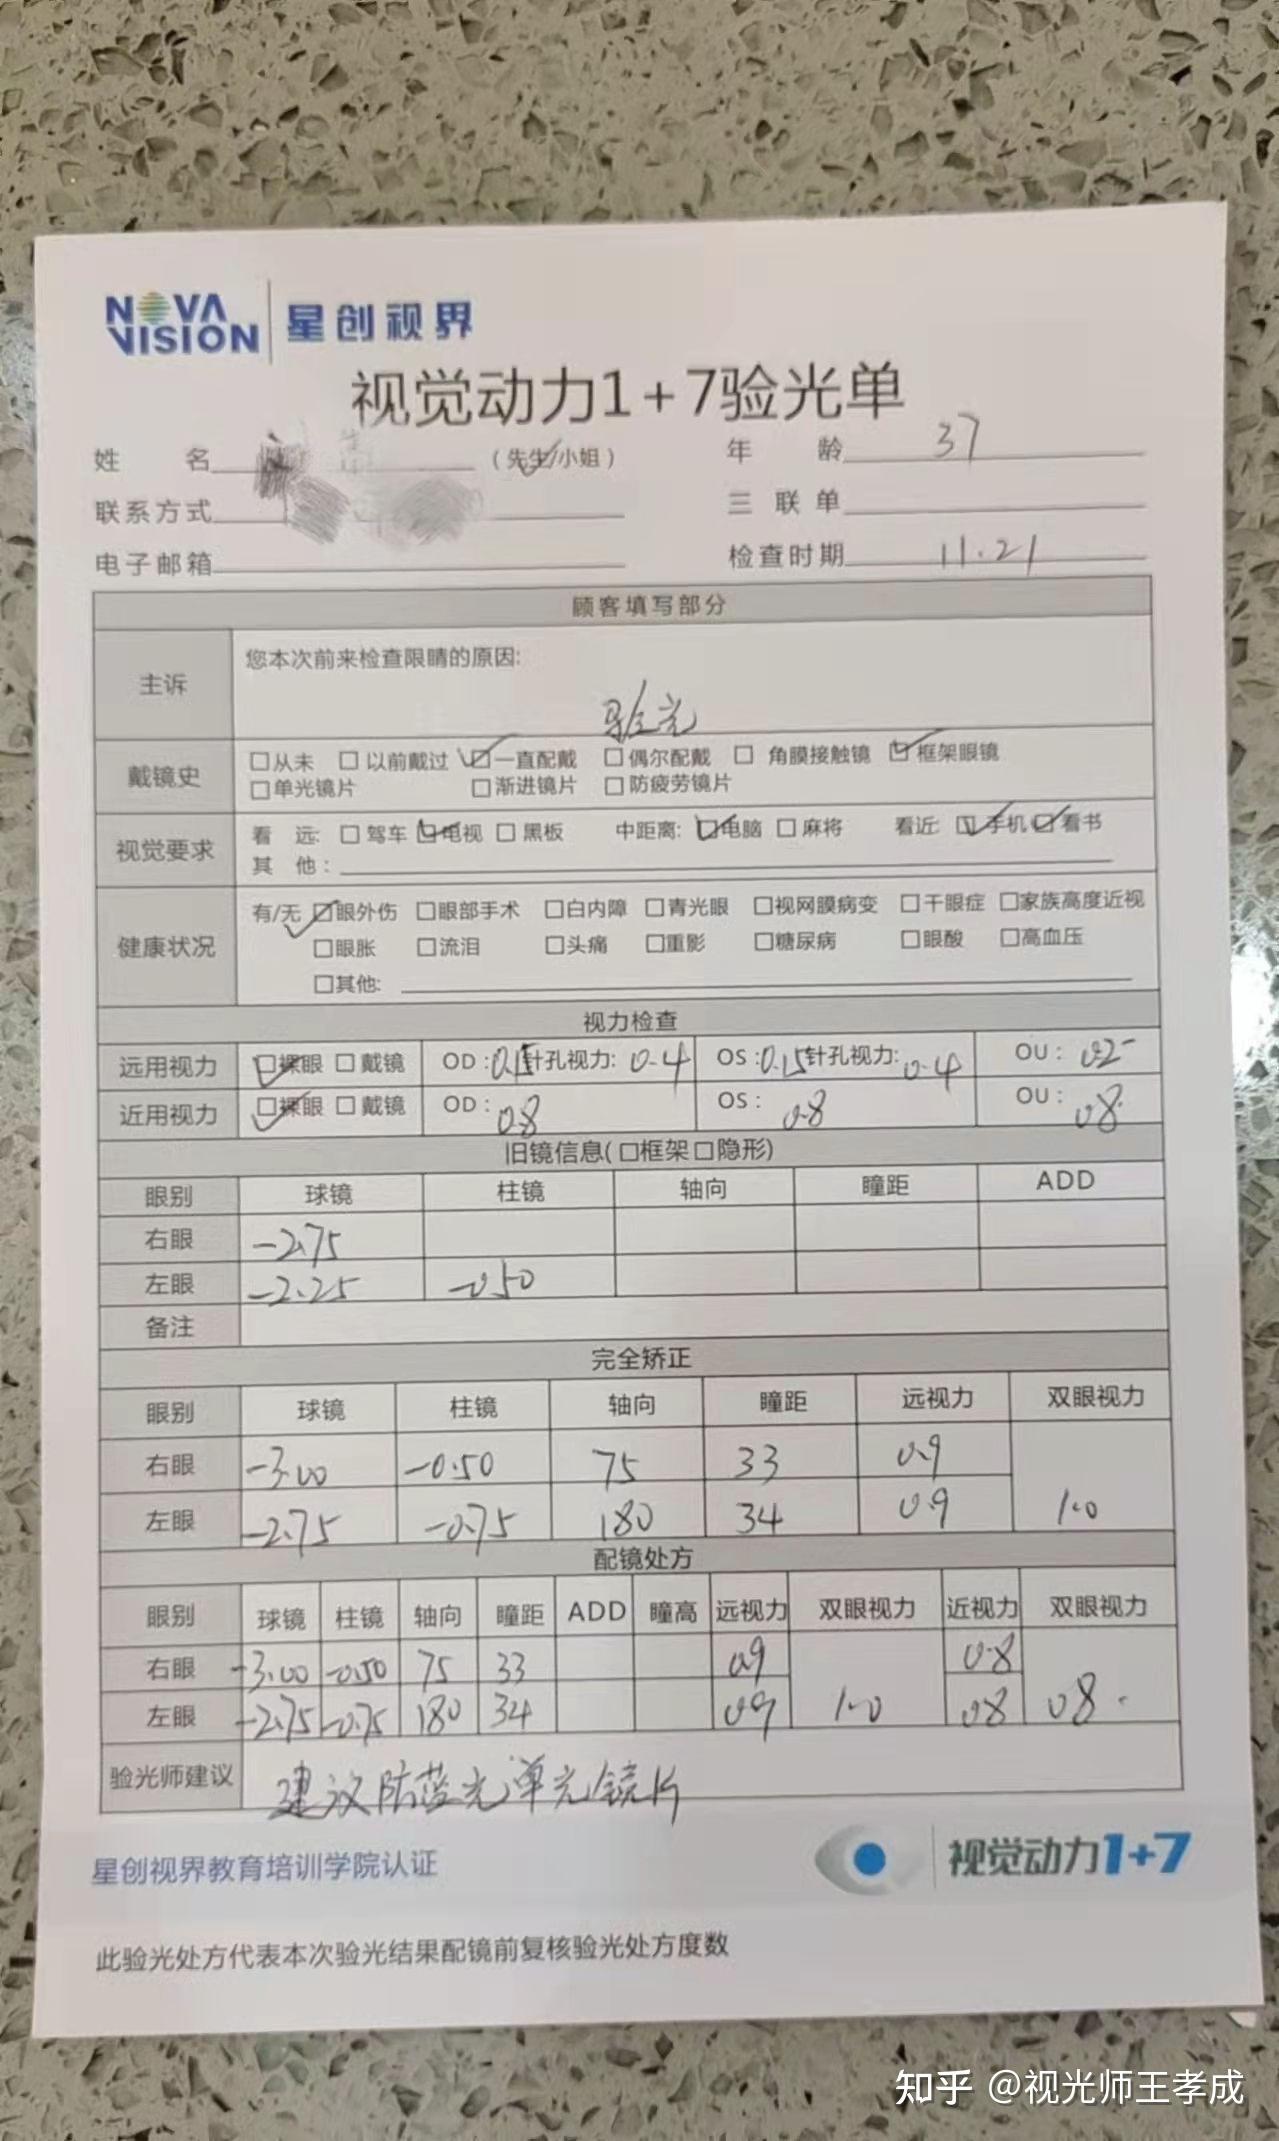 NOVA VISION 星创视界
视觉动力1+7验光单
姓 名 (先生/小姐) 年 龄 37
联系方式 三 联 单
电子邮箱 检查时期 11.21
顾客填写部分
主诉 您本次前来检查眼睛的原因:
验光
戴镜史 □从未 □以前戴过 □一直配戴 □偶尔配戴 □角膜接触镜 □框架眼镜
□单光镜片 □渐进镜片 □防疲劳镜片
视觉要求 看 远: □驾车 □电视 □黑板 中距离: □电脑 □麻将 看近: □手机 □看书
其 他:
健康状况 有/无 □眼外伤 □眼部手术 □白内障 □青光眼 □视网膜病变 □干眼症 □家族高度近视
□眼胀 □流泪 □头痛 □重影 □糖尿病 □眼酸 □高血压
□其他:
视力检查
远用视力 □裸眼 □戴镜 OD: 0.15 针孔视力: 0.4 OS: 0.15 针孔视力: 0.4 OU: 0.2
近用视力 □裸眼 □戴镜 OD: 0.8 OS: 0.8 OU: 0.8
旧镜信息(□框架□隐形)
眼别 球镜 柱镜 轴向 瞳距 ADD
右眼 -2.75
左眼 -2.25 -0.50
备注
完全矫正
眼别 球镜 柱镜 轴向 瞳距 远视力 双眼视力
右眼 -3.00 -0.50 75 33 0.9
左眼 -2.75 -0.75 180 34 0.9 1.0
配镜处方
眼别 球镜 柱镜 轴向 瞳距 ADD 瞳高 远视力 双眼视力 近视力 双眼视力
右眼 -3.00 -0.50 75 33 0.9 0.8
左眼 -2.75 -0.75 180 34 0.9 1.0 0.8 0.8
验光师建议 建议防蓝光单光镜片
星创视界教育培训学院认证 视觉动力1+7
此验光处方代表本次验光结果配镜前复核验光处方度数
知乎 @视光师王孝成